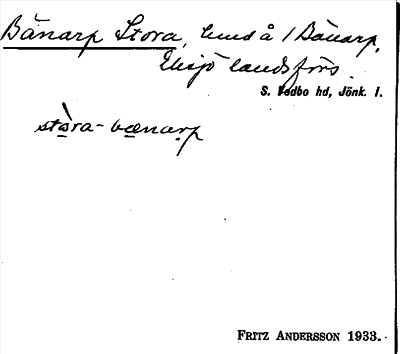 Bänarp Stora, hmd å 1 Bänarp,
Eksjö landsförs.
S. Vedbo hd, Jönk. l.
stòra-bænarp
FRITZ ANDERSSON 1933.